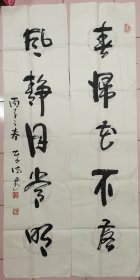 春归花不落
风静月常明
丙子之春